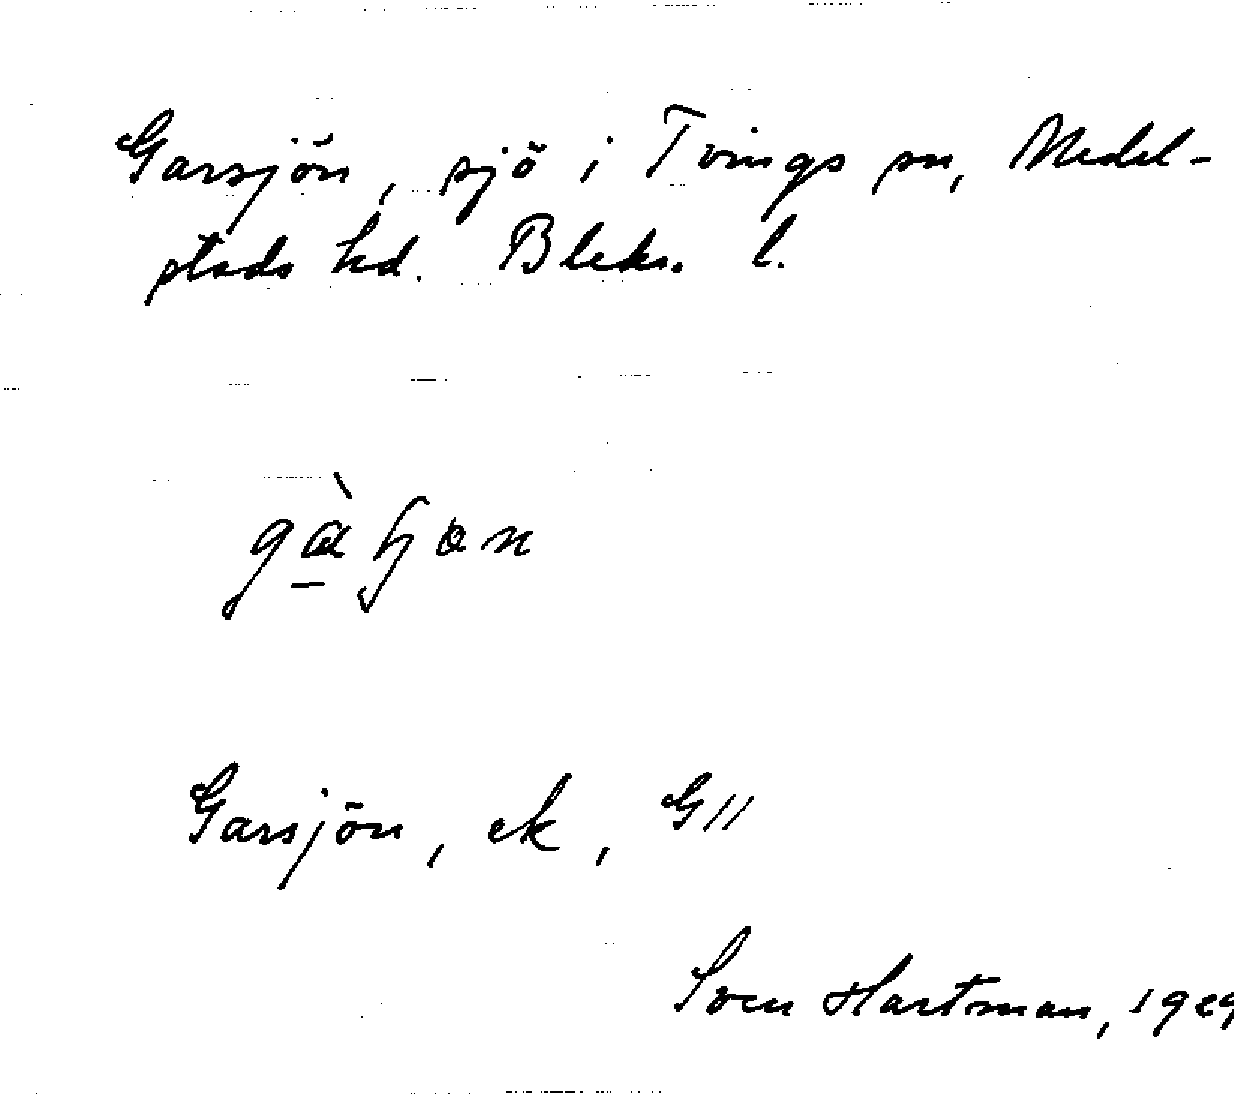 Garsjön, sjö i Tvings sn, Medel-
stads hd. Blek. l.
Garsjön, ek, G11
Sven Hartman, 1929